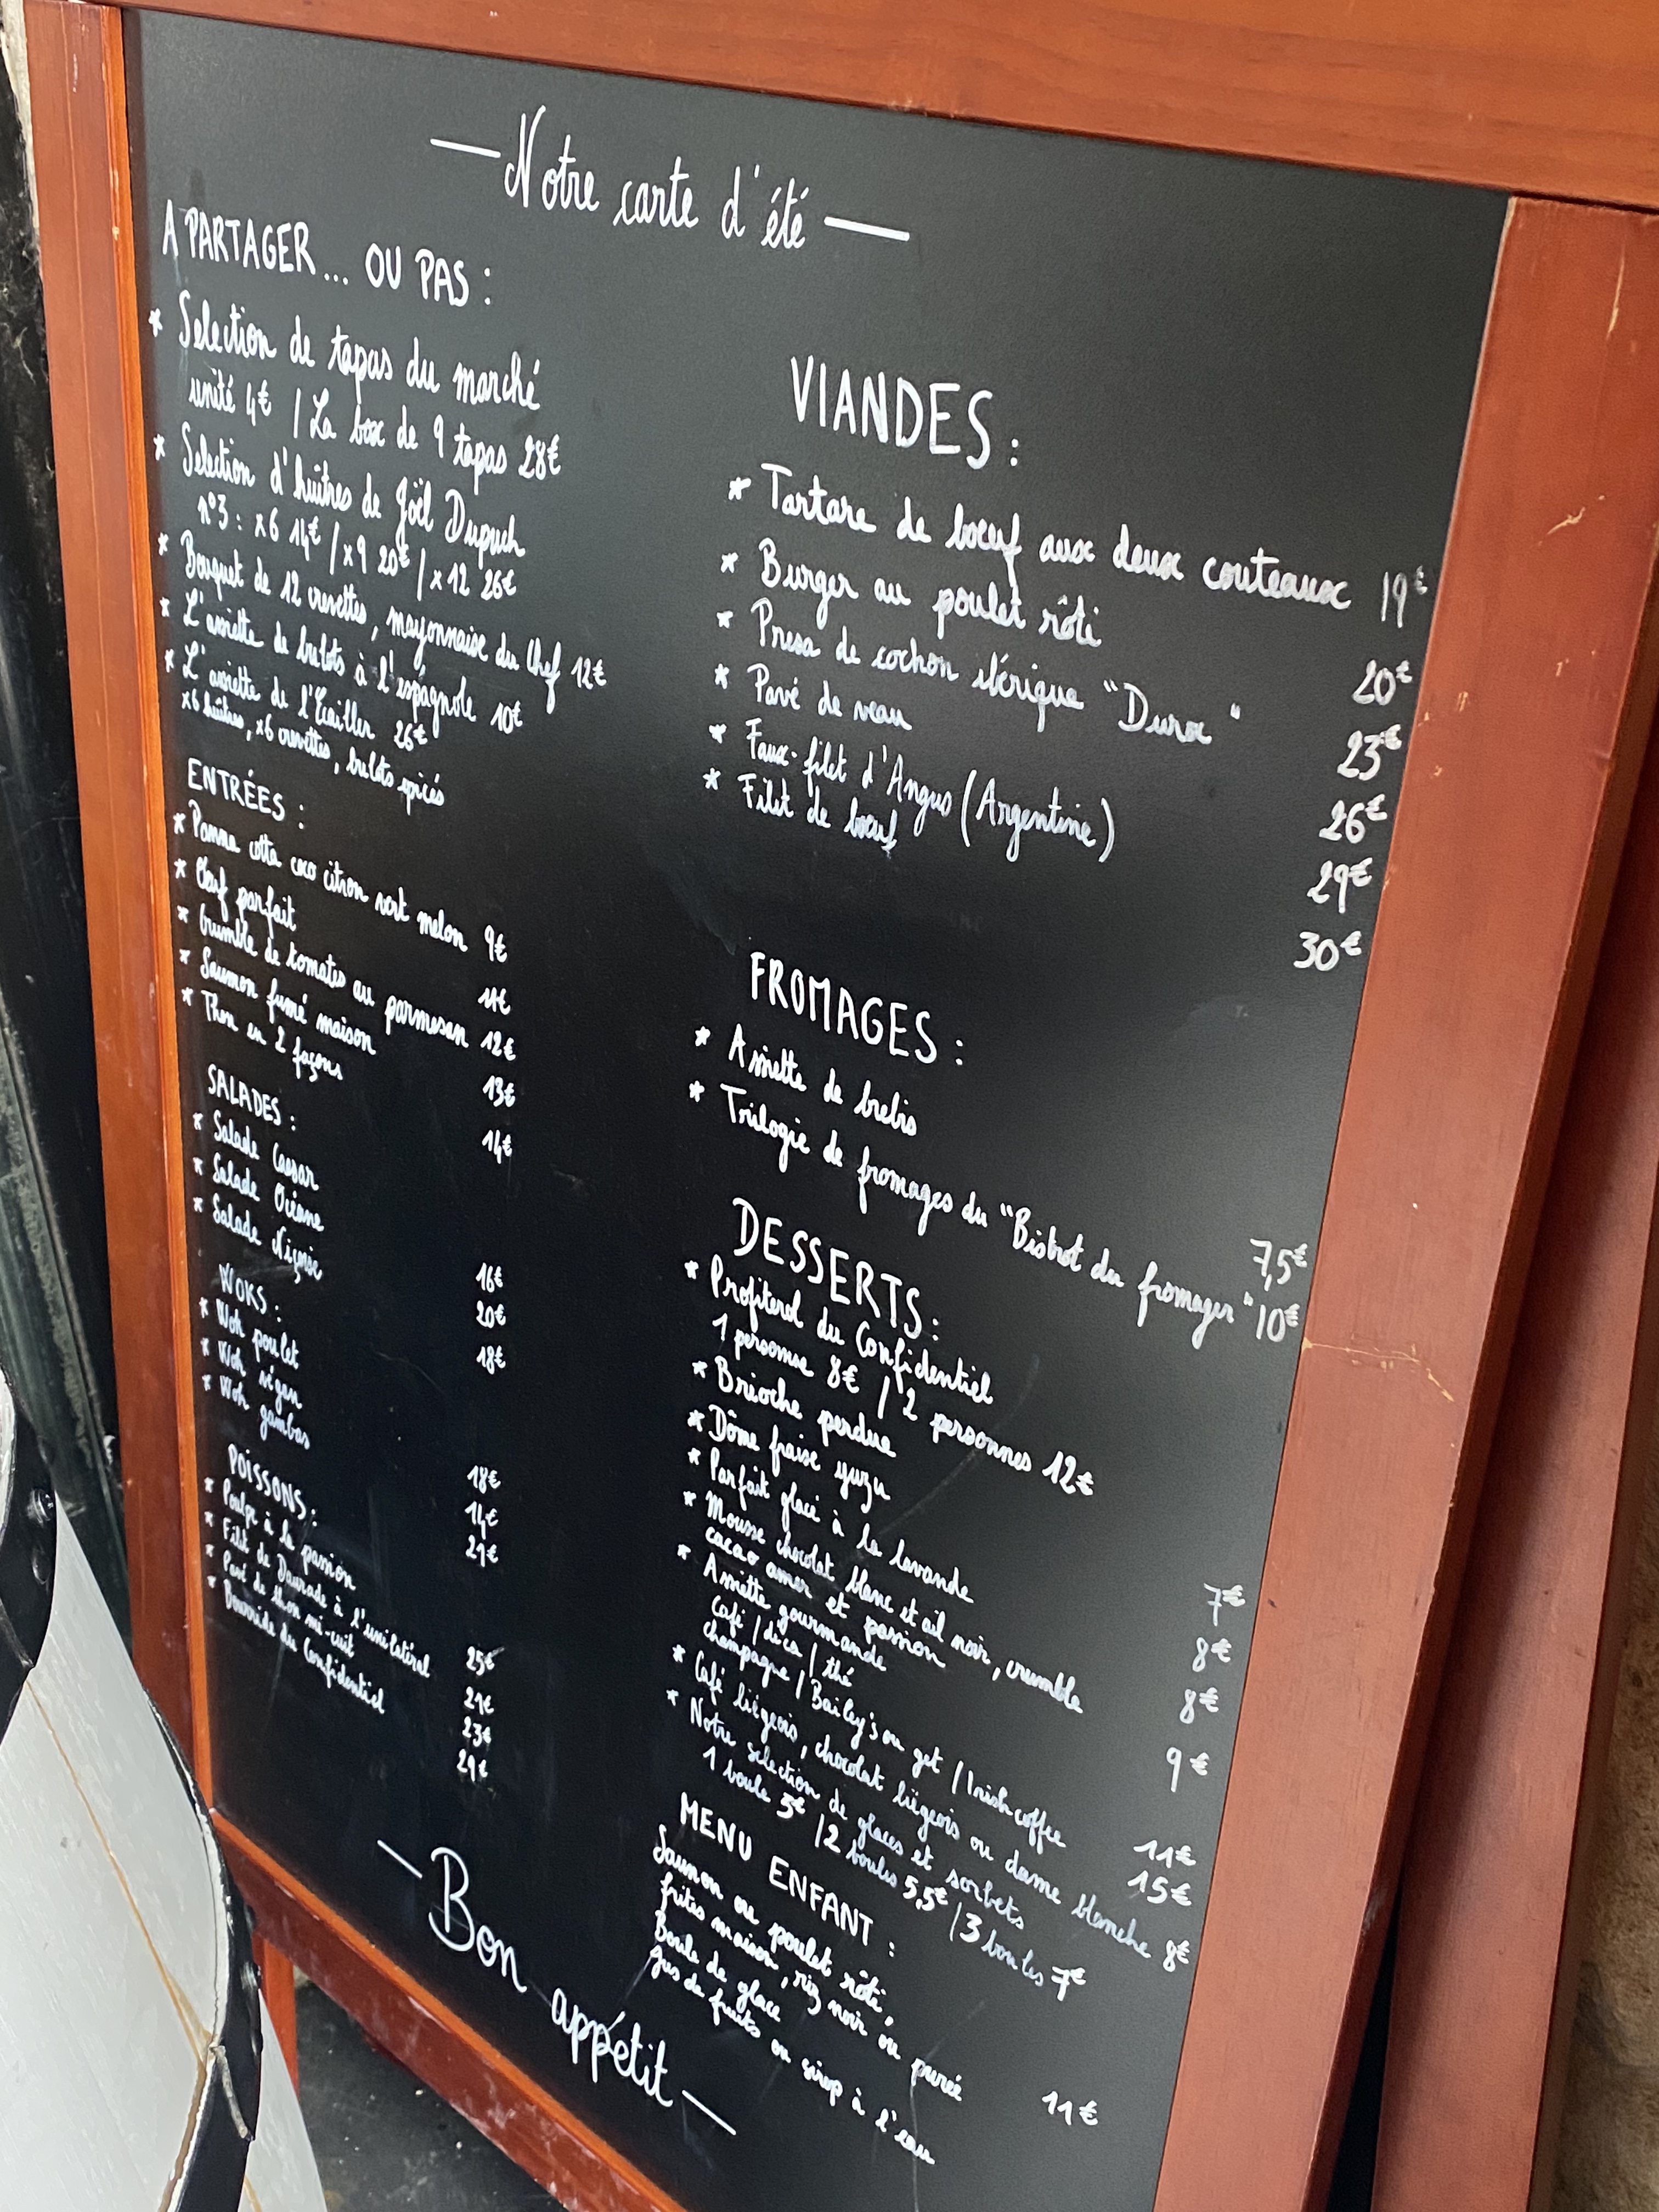 — Notre carte d'été —
A PARTAGER... OU PAS :
* Selection de tapas du marché
unité 4€ / La box de 9 tapas 28€
* Selection d'huîtres de Joël Dupuch
n°3 : x6 14€ / x9 20€ / x12 26€
* Bouquet de 12 crevettes, mayonnaise du Chef 12€
* L'assiette de bulots à l'espagnole 10€
* L'assiette de l'Ecailler 26€
x6 huîtres, x6 crevettes, bulots épicés
ENTRÉES :
* Panna cotta coco citron vert melon 9€
* Œuf parfait 11€
* Crumble de tomates au parmesan 12€
* Saumon fumé maison 13€
* Thon en 2 façons 14€
SALADES :
* Salade Caesar 16€
* Salade Océane 20€
* Salade Niçoise 18€
WOKS :
* Wok poulet 18€
* Wok végan 14€
* Wok gambas 21€
POISSONS :
* Poulpe à la passion 25€
* Filet de Daurade à l'unilatéral 21€
* Pavé de thon mi-cuit 23€
* Bourride du Confidentiel 29€
VIANDES :
* Tartare de bœuf aux deux couteaux 19€
* Burger au poulet rôti 20€
* Presa de cochon ibérique "Duroc" 23€
* Pavé de veau 26€
* Faux-filet d'Angus (Argentine) 29€
* Filet de bœuf 30€
FROMAGES :
* Assiette de brebis 7,5€
* Trilogie de fromages du "Bistrot du fromager" 10€
DESSERTS :
* Profiterol du Confidentiel
1 personne 8€ / 2 personnes 12€
* Brioche perdue 7€
* Dôme fraise yuzu 8€
* Parfait glacé à la lavande 8€
* Mousse chocolat blanc et ail noir, crumble
cacao amer et passion 9€
* Assiette gourmande
Café / déca / thé 11€
champagne / Bailey's ou get / Irish coffee 15€
* Café liégeois, chocolat liégeois ou dame blanche 8€
* Notre sélection de glaces et sorbets
1 boule 3€ / 2 boules 5,5€ / 3 boules 7€
MENU ENFANT :
Saumon ou poulet rôti,
frites maison, riz noir ou purée
Boule de glace 11€
Jus de fruits ou sirop à l'eau
— Bon appétit —